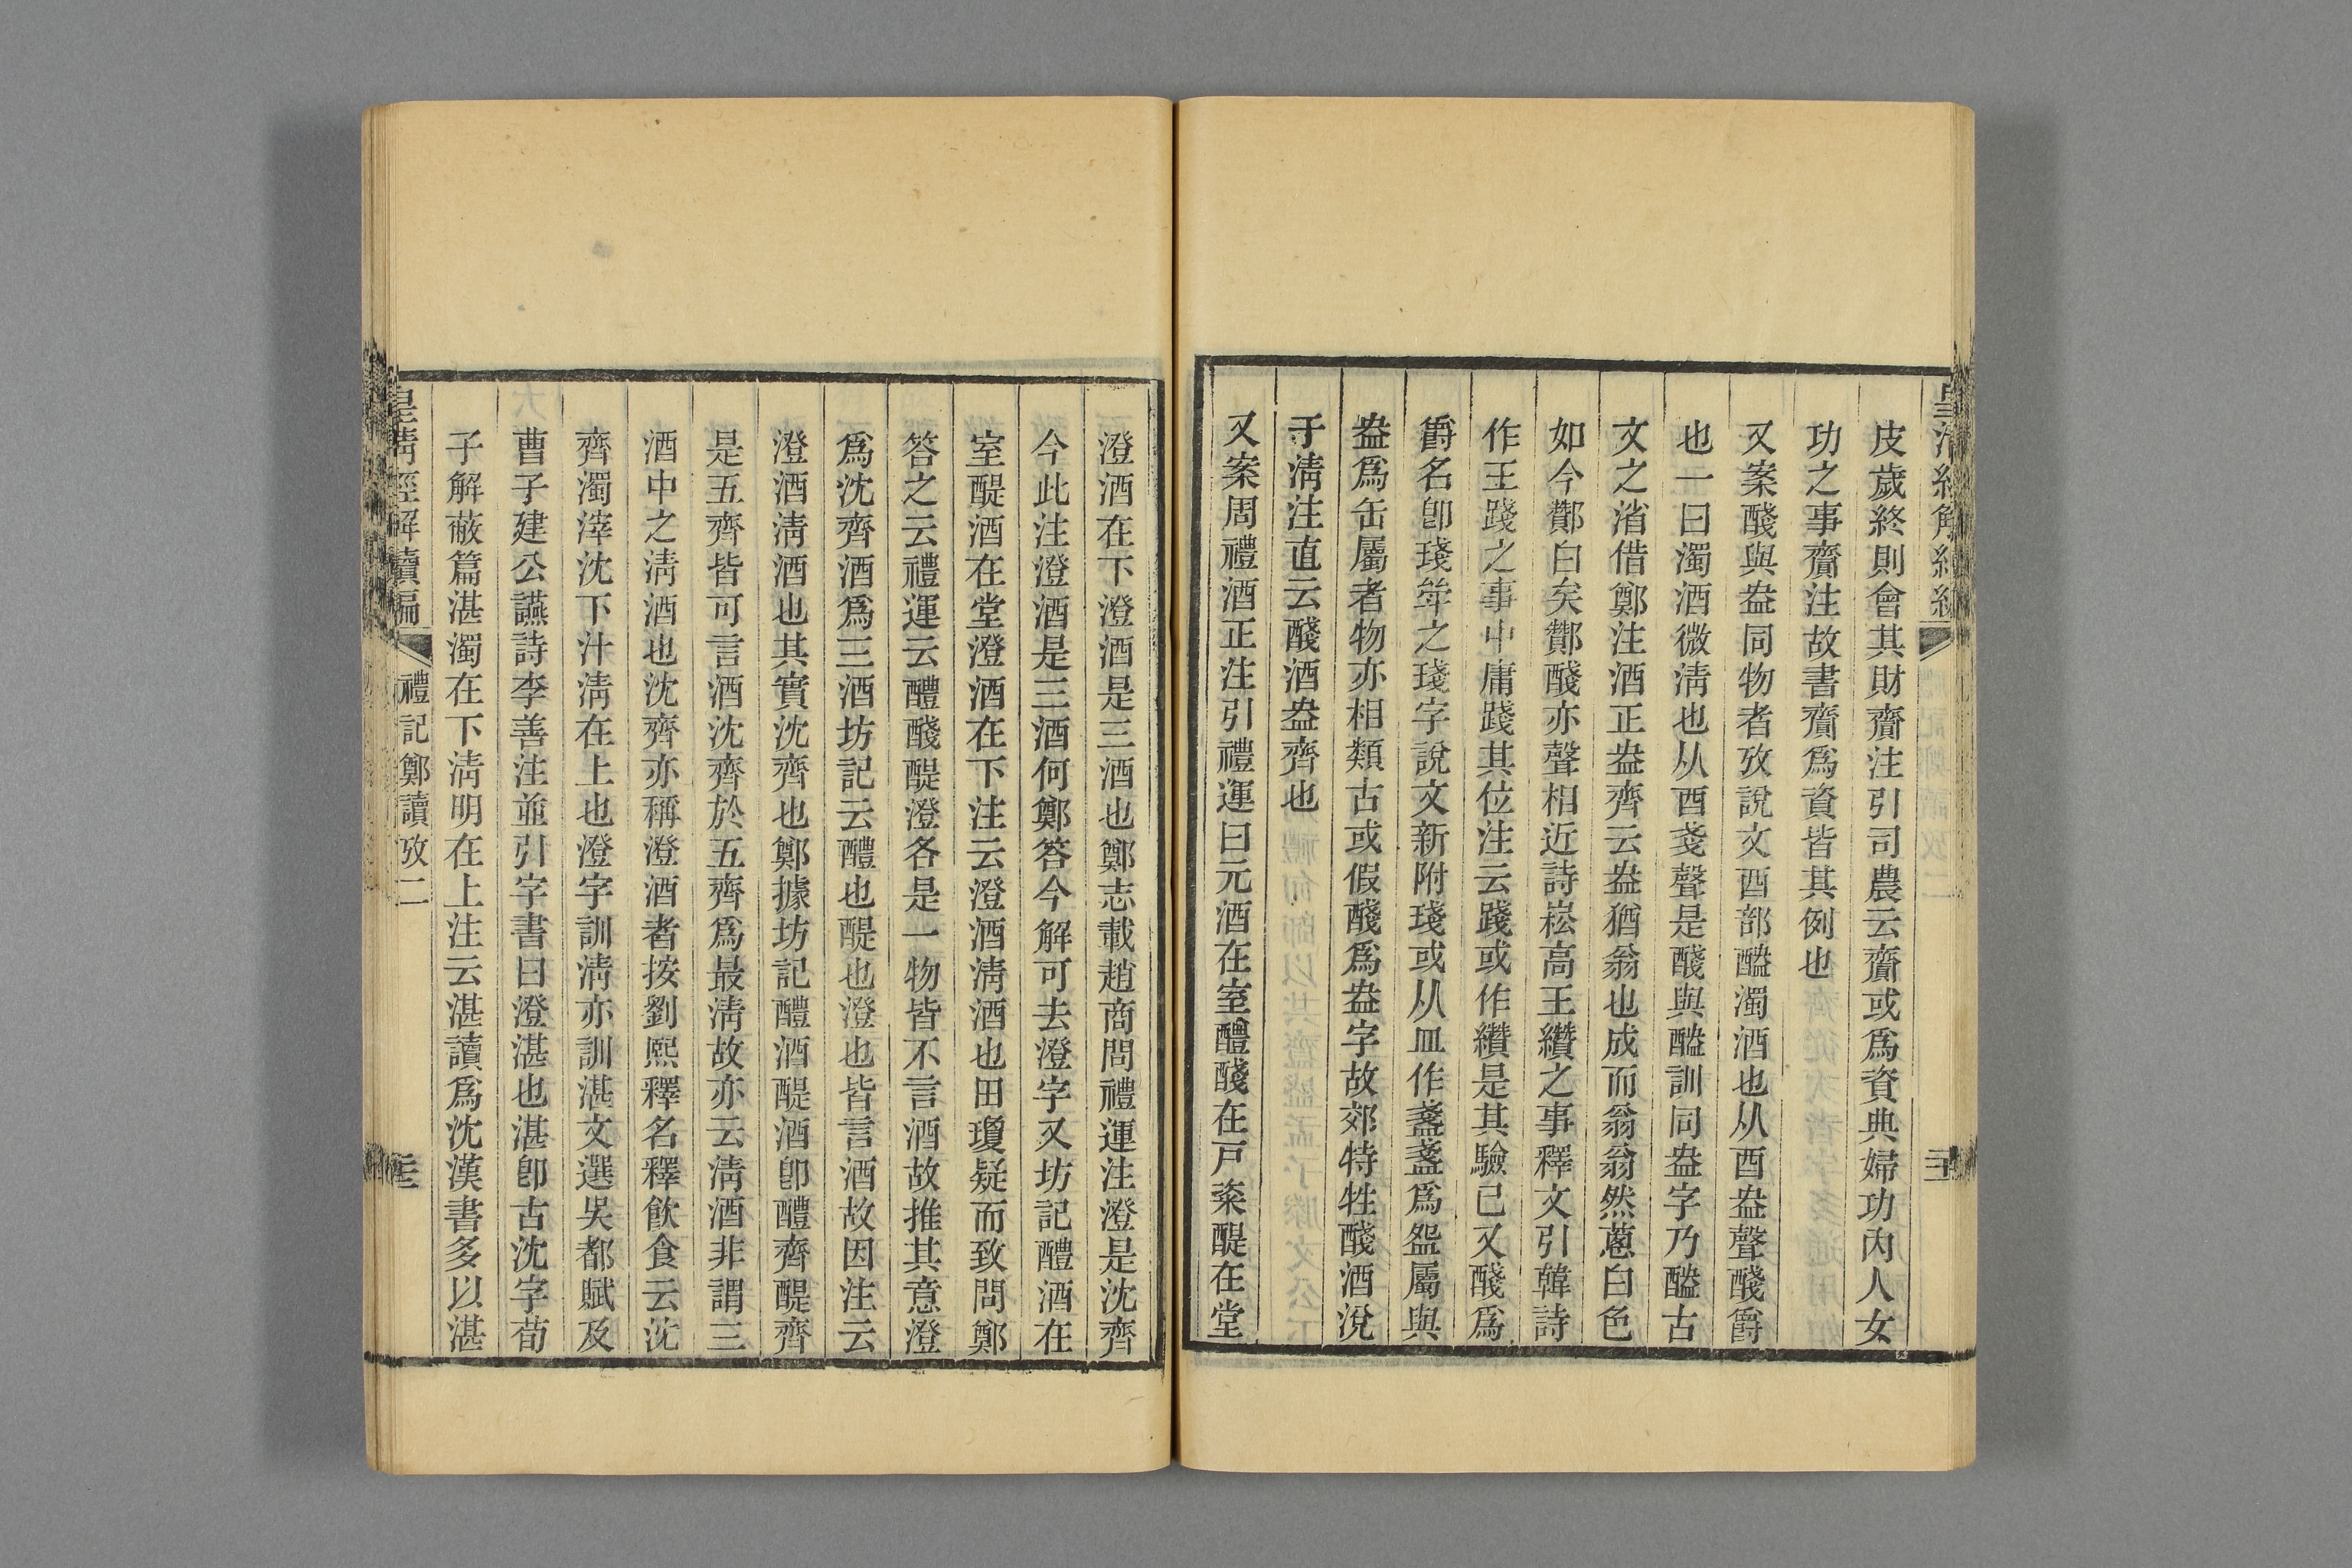 皮歲終則會其財齎注引司農云齎或爲資典婦功內人女
功之事齎注故書齎爲資皆其例也
又案醆與盎同物者攷說文酉部醠濁酒也从酉盎聲醆爵
也一曰濁酒微淸也从酉戔聲是醆與醠訓同盎字乃醠古
文之省借鄭注酒正盎齊云盎猶翁也成而翁翁然蔥白色
如今酇白矣酇醆亦聲相近詩崧高王纘之事釋文引韓詩
作王踐之事中庸踐其位注云踐或作纘是其驗已又醆爲
爵名卽琖斝之琖字說文新附琖或从皿作盞盞爲盌屬與
盎爲缶屬者物亦相類古或假醆爲盎字故郊特牲醆酒涚
于淸注直云醆酒盎齊也
又案周禮酒正注引禮運曰元酒在室醴醆在戸粢醍在堂
澄酒在下澄酒是三酒也鄭志載趙商問禮運注澄是沈齊
今此注澄酒是三酒何鄭答今解可去澄字又坊記醴酒在
室醍酒在堂澄酒在下注云澄酒淸酒也田瓊疑而致問鄭
答之云禮運云醴醆醍澄各是一物皆不言酒故推其意澄
爲沈齊酒爲三酒坊記云醴也醍也澄也皆言酒故因注云
澄酒淸酒也其實沈齊也鄭據坊記醴酒醍酒卽醴齊醍齊
是五齊皆可言酒沈齊於五齊爲最淸故亦云淸酒非謂三
酒中之淸酒也沈齊亦稱澄酒者按劉熙釋名釋飮食云沈
齊濁滓沈下汁淸在上也澄字訓淸亦訓湛文選吳都賦及
曹子建公讌詩李善注並引字書曰澄湛也湛卽古沈字荀
子解蔽篇湛濁在下淸明在上注云湛讀爲沈漢書多以湛
皇淸經解續編
禮記鄭讀攷二